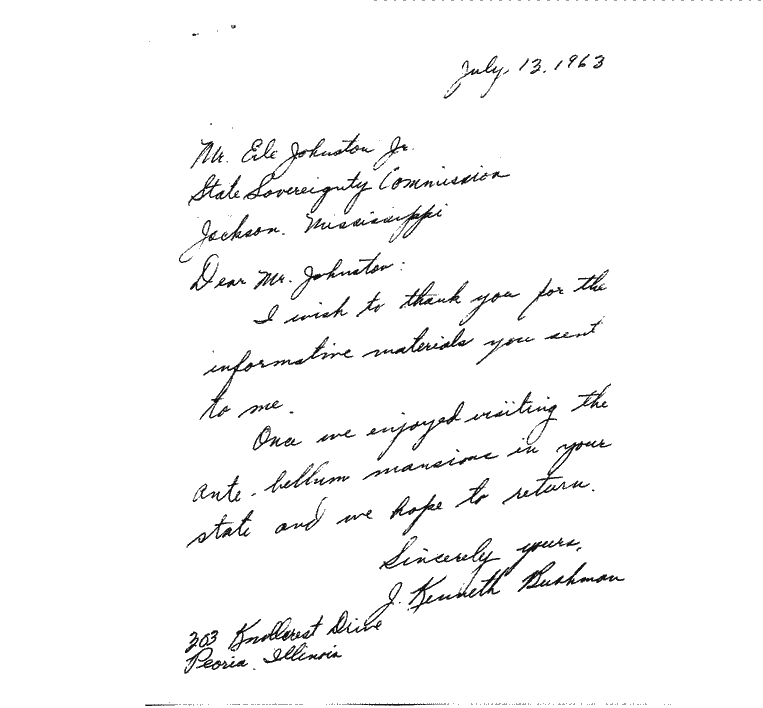 July, 13, 1963
Mr. Erle Johnston Jr.
State Sovereignty Commission
Jackson, Mississippi
Dear Mr. Johnston:
I wish to thank you for the
informative materials you sent
to me.
Once we enjoyed visiting the
ante-bellum mansions in your
state and we hope to return.
Sincerely yours,
J. Kenneth Bushman
303 Knollcrest Drive
Peoria, Illinois